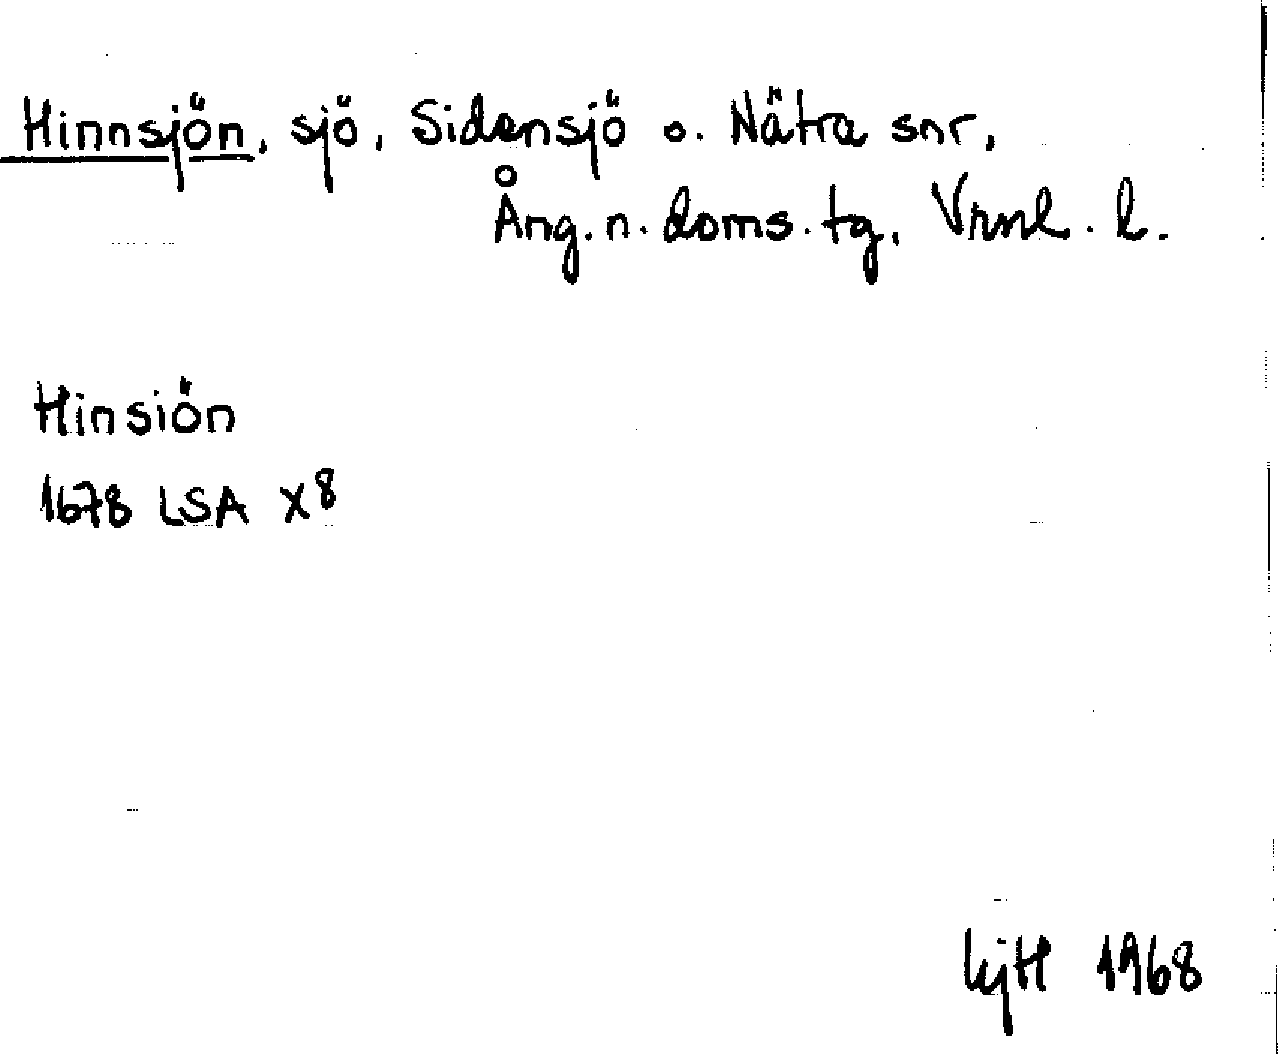 Hinnsjön, sjö, Sidensjö o. Nätra snr,
Ång. n. doms. tg, Vrnl. l.
Hinsiön
1678 LSA X8
1968